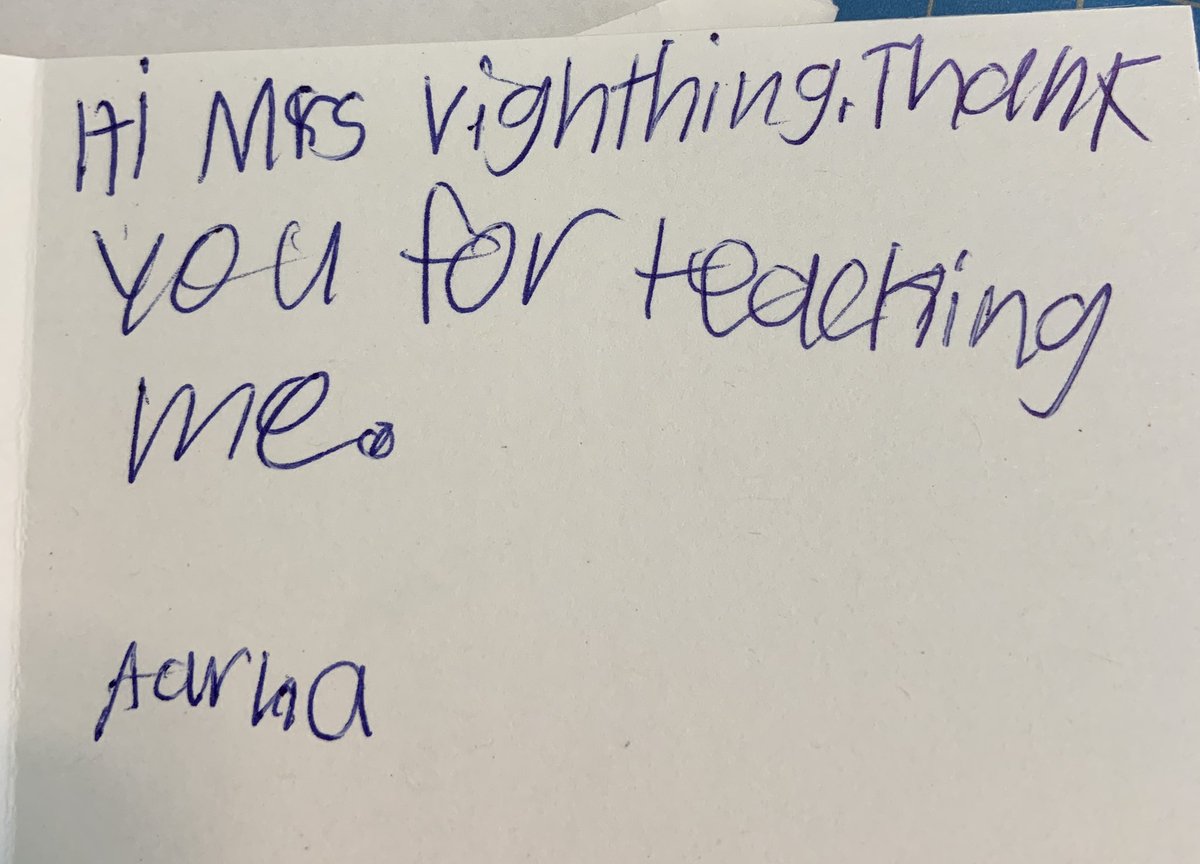 Hi Mrs Vighthing. Thank
you for teaching
me.
Aarha